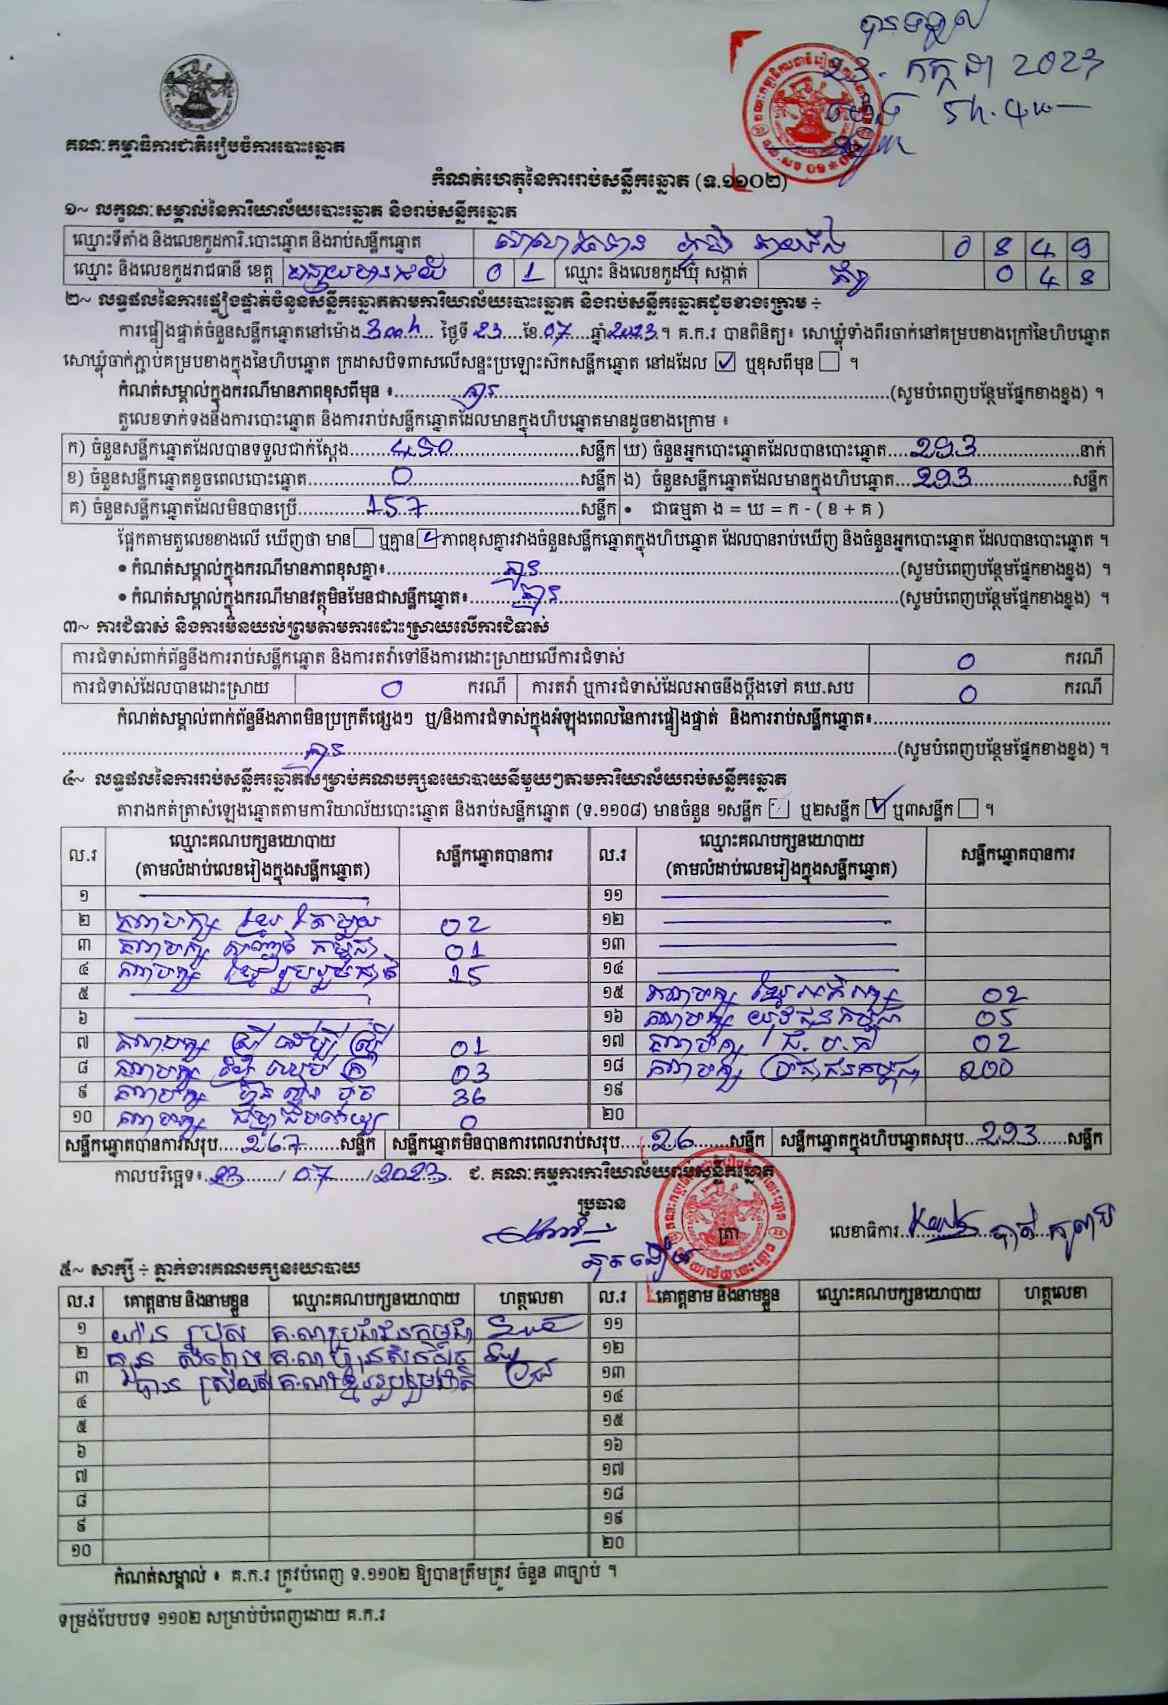 បានទទួល
23. កក្កដា 2023
ម៉ោង 5h. 4
គណៈកម្មាធិការជាតិរៀបចំការបោះឆ្នោត
កំណត់ហេតុនៃការរាប់សន្លឹកឆ្នោត (ទ.១១០២)
១~ លក្ខណៈសម្គាល់នៃការិយាល័យបោះឆ្នោត និងរាប់សន្លឹកឆ្នោត
ឈ្មោះទីតាំង និងលេខកូដការិ.បោះឆ្នោត និងរាប់សន្លឹកឆ្នោត 0 8 4 9
ឈ្មោះ និងលេខកូដរាជធានី ខេត្ត បន្ទាយមានជ័យ 0 1 ឈ្មោះ និងលេខកូដឃុំ សង្កាត់ 0 4 8
២~ លទ្ធផលនៃការផ្ទៀងផ្ទាត់ចំនួនសន្លឹកឆ្នោតតាមការិយាល័យបោះឆ្នោត និងរាប់សន្លឹកឆ្នោតដូចខាងក្រោម ÷
ការផ្ទៀងផ្ទាត់ចំនួនសន្លឹកឆ្នោតនៅម៉ោង 3 ថ្ងៃទី 23 ខែ 07 ឆ្នាំ 2023 ។ គ.ក.រ បានពិនិត្យ៖ សោឃ្លុំទាំងពីរចាក់នៅគម្របខាងក្រៅនៃហិបឆ្នោត
សោឃ្លុំចាក់ភ្ជាប់គម្របខាងក្នុងនៃហិបឆ្នោត ក្រដាសបិទពាសលើសន្ទះប្រឡោះស៊កសន្លឹកឆ្នោត នៅដដែល ☑ ឬខុសពីមុន ☐ ។
កំណត់សម្គាល់ក្នុងករណីមានភាពខុសពីមុន ៖ គ្មាន (សូមបំពេញបន្ថែមផ្នែកខាងខ្នង) ។
តួលេខទាក់ទងនឹងការបោះឆ្នោត និងការរាប់សន្លឹកឆ្នោតដែលមានក្នុងហិបឆ្នោតមានដូចខាងក្រោម ៖
ក) ចំនួនសន្លឹកឆ្នោតដែលបានទទួលជាក់ស្តែង 450 សន្លឹក ឃ) ចំនួនអ្នកបោះឆ្នោតដែលបានបោះឆ្នោត 293 នាក់
ខ) ចំនួនសន្លឹកឆ្នោតខូចពេលបោះឆ្នោត 0 សន្លឹក ង) ចំនួនសន្លឹកឆ្នោតដែលមានក្នុងហិបឆ្នោត 293 សន្លឹក
គ) ចំនួនសន្លឹកឆ្នោតដែលមិនបានប្រើ 157 សន្លឹក • ជាធម្មតា ង = ឃ = ក - ( ខ + គ )
ផ្អែកតាមតួលេខខាងលើ ឃើញថា មាន ☐ ឬគ្មាន ☑ ភាពខុសគ្នារវាងចំនួនសន្លឹកឆ្នោតក្នុងហិបឆ្នោត ដែលបានរាប់ឃើញ និងចំនួនអ្នកបោះឆ្នោត ដែលបានបោះឆ្នោត ។
• កំណត់សម្គាល់ក្នុងករណីមានភាពខុសគ្នា៖ គ្មាន (សូមបំពេញបន្ថែមផ្នែកខាងខ្នង) ។
• កំណត់សម្គាល់ក្នុងករណីមានវត្ថុមិនមែនជាសន្លឹកឆ្នោត៖ គ្មាន (សូមបំពេញបន្ថែមផ្នែកខាងខ្នង) ។
៣~ ការជំទាស់ និងការមិនយល់ព្រមតាមការដោះស្រាយលើការជំទាស់
ការជំទាស់ពាក់ព័ន្ធនឹងការរាប់សន្លឹកឆ្នោត និងការតវ៉ាទៅនឹងការដោះស្រាយលើការជំទាស់ 0 ករណី
ការជំទាស់ដែលបានដោះស្រាយ 0 ករណី ការតវ៉ា ឬការជំទាស់ដែលអាចនឹងប្តឹងទៅ គឃ.សប 0 ករណី
កំណត់សម្គាល់ពាក់ព័ន្ធនឹងភាពមិនប្រក្រតីផ្សេងៗ ឬ/និងការជំទាស់ក្នុងអំឡុងពេលនៃការផ្ទៀងផ្ទាត់ និងការរាប់សន្លឹកឆ្នោត៖
គ្មាន (សូមបំពេញបន្ថែមផ្នែកខាងខ្នង) ។
៤~ លទ្ធផលនៃការរាប់សន្លឹកឆ្នោតសម្រាប់គណបក្សនយោបាយនីមួយៗតាមការិយាល័យរាប់សន្លឹកឆ្នោត
តារាងកត់ត្រាសំឡេងឆ្នោតតាមការិយាល័យបោះឆ្នោត និងរាប់សន្លឹកឆ្នោត (ទ.១១០៨) មានចំនួន ១សន្លឹក ☐ ឬ២សន្លឹក ☑ ឬ៣សន្លឹក ☐ ។
ល.រ ឈ្មោះគណបក្សនយោបាយ សន្លឹកឆ្នោតបានការ ល.រ ឈ្មោះគណបក្សនយោបាយ សន្លឹកឆ្នោតបានការ
(តាមលំដាប់លេខរៀងក្នុងសន្លឹកឆ្នោត) (តាមលំដាប់លេខរៀងក្នុងសន្លឹកឆ្នោត)
១ ១១
២ គណបក្ស ខ្មែរ តែមួយ 02 ១២
៣ គណបក្ស កម្ពុជា 01 ១៣
៤ គណបក្ស ខ្មែររួបរួមជាតិ 15 ១៤
៥ ១៥ គណបក្ស ខ្មែរអភិរក្ស 02
៦ ១៦ គណបក្ស យុវជនកម្ពុជា 05
៧ គណបក្ស ស្រ្តី ដើម្បី ស្រ្តី 01 ១៧ គណបក្ស 02
៨ គណបក្ស 03 ១៨ គណបក្ស ប្រជាជនកម្ពុជា 200
៩ គណបក្ស ហ៊្វុនស៊ិនប៉ិច 36 ១៩
១០ គណបក្ស 0 ២០
សន្លឹកឆ្នោតបានការសរុប 267 សន្លឹក សន្លឹកឆ្នោតមិនបានការពេលរាប់សរុប 26 សន្លឹក សន្លឹកឆ្នោតក្នុងហិបឆ្នោតសរុប 293 សន្លឹក
កាលបរិច្ឆេទ៖ 23 / 07 / 2023 ជ. គណៈកម្មការការិយាល័យរាប់សន្លឹកឆ្នោត
ប្រធាន ត្រា លេខាធិការ
៥~ សាក្សី ÷ ភ្នាក់ងារគណបក្សនយោបាយ
ល.រ គោត្តនាម និងនាមខ្លួន ឈ្មោះគណបក្សនយោបាយ ហត្ថលេខា ល.រ គោត្តនាម និងនាមខ្លួន ឈ្មោះគណបក្សនយោបាយ ហត្ថលេខា
១ គ.ណប្រជាជនកម្ពុជា ១១
២ គ.ណហ៊្វុនស៊ិនប៉ិច ១២
៣ គ.ណខ្មែររួបរួមជាតិ ១៣
៤ ១៤
៥ ១៥
៦ ១៦
៧ ១៧
៨ ១៨
៩ ១៩
១០ ២០
កំណត់សម្គាល់ ៖ គ.ក.រ ត្រូវបំពេញ ទ.១១០២ ឱ្យបានត្រឹមត្រូវ ចំនួន ៣ច្បាប់ ។
ទម្រង់បែបបទ ១១០២ សម្រាប់បំពេញដោយ គ.ក.រ